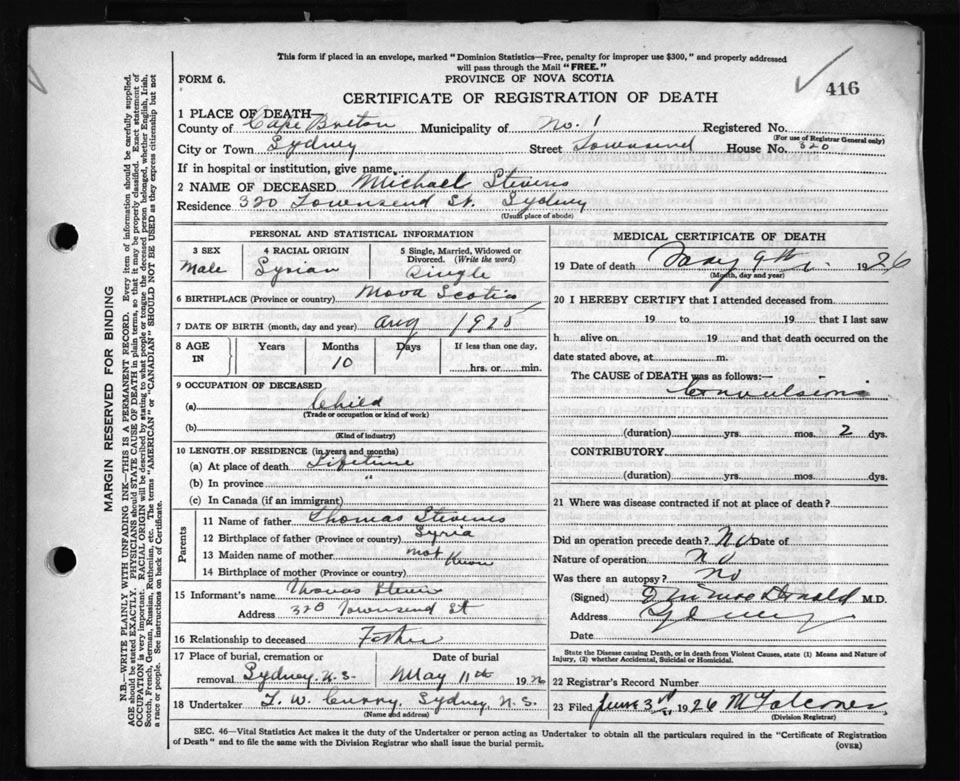 This form if placed in an envelope, marked "Dominion Statistics—Free, penalty for improper use $300," and properly addressed
will pass through the Mail "FREE."
FORM 6.
PROVINCE OF NOVA SCOTIA
416
CERTIFICATE OF REGISTRATION OF DEATH
1 PLACE OF DEATH
County of Cape Breton Municipality of No. 1 Registered No.
(For use of Registrar General only)
City or Town Sydney Street Townsend House No. 320
If in hospital or institution, give name
2 NAME OF DECEASED Michael Stevens
Residence 320 Townsend St. Sydney
(Usual place of abode)
PERSONAL AND STATISTICAL INFORMATION
3 SEX 4 RACIAL ORIGIN 5 Single, Married, Widowed or
Divorced. (Write the word)
Male Syrian Single
6 BIRTHPLACE (Province or country) Nova Scotia
7 DATE OF BIRTH (month, day and year) Aug 1925
8 AGE IN Years Months Days If less than one day,
10 hrs. or min.
9 OCCUPATION OF DECEASED
(a) Child
(Trade or occupation or kind of work)
(b)
(Kind of industry)
10 LENGTH OF RESIDENCE (in years and months)
(a) At place of death Lifetime
(b) In province "
(c) In Canada (if an immigrant)
Parents
11 Name of father Thomas Stevens
12 Birthplace of father (Province or country) Syria
13 Maiden name of mother not Known
14 Birthplace of mother (Province or country)
15 Informant's name Thomas Stevens
Address 320 Townsend St
16 Relationship to deceased Father
17 Place of burial, cremation or Date of burial
removal Sydney N.S. May 11th 1926
18 Undertaker T. W. Curry, Sydney, N.S.
(Name and address)
MEDICAL CERTIFICATE OF DEATH
19 Date of death May 9th 1926
(Month, day and year)
20 I HEREBY CERTIFY that I attended deceased from
19 to 19 that I last saw
h alive on 19 and that death occurred on the
date stated above, at m.
The CAUSE of DEATH was as follows:—
Convulsions
(duration) yrs. mos. 2 dys.
CONTRIBUTORY
(duration) yrs. mos. dys.
21 Where was disease contracted if not at place of death?
Did an operation precede death? No Date of
Nature of operation No
Was there an autopsy? No
(Signed) MacDonald M.D.
Address Sydney
Date
State the Disease causing Death, or in death from Violent Causes, state (1) Means and Nature of
Injury, (2) whether Accidental, Suicidal or Homicidal.
22 Registrar's Record Number
23 Filed June 3rd 1926 M Falconer
(Division Registrar)
SEC. 46—Vital Statistics Act makes it the duty of the Undertaker or person acting as Undertaker to obtain all the particulars required in the "Certificate of Registration
of Death" and to file the same with the Division Registrar who shall issue the burial permit.
(OVER)
MARGIN RESERVED FOR BINDING
N.B.—WRITE PLAINLY WITH UNFADING INK—THIS IS A PERMANENT RECORD. Every item of information should be carefully supplied.
AGE should be stated EXACTLY. PHYSICIANS should STATE CAUSE OF DEATH in plain terms, so that it may be properly classified. Exact statement of
OCCUPATION is very important. RACIAL ORIGIN will be described by stating to what people or tongue the deceased person belonged, whether English, Irish,
Scotch, French, German, Russian, Ruthenian, etc. The terms "AMERICAN" or "CANADIAN" SHOULD NOT BE USED as they express citizenship but not
a race or people. See instructions on back of Certificate.